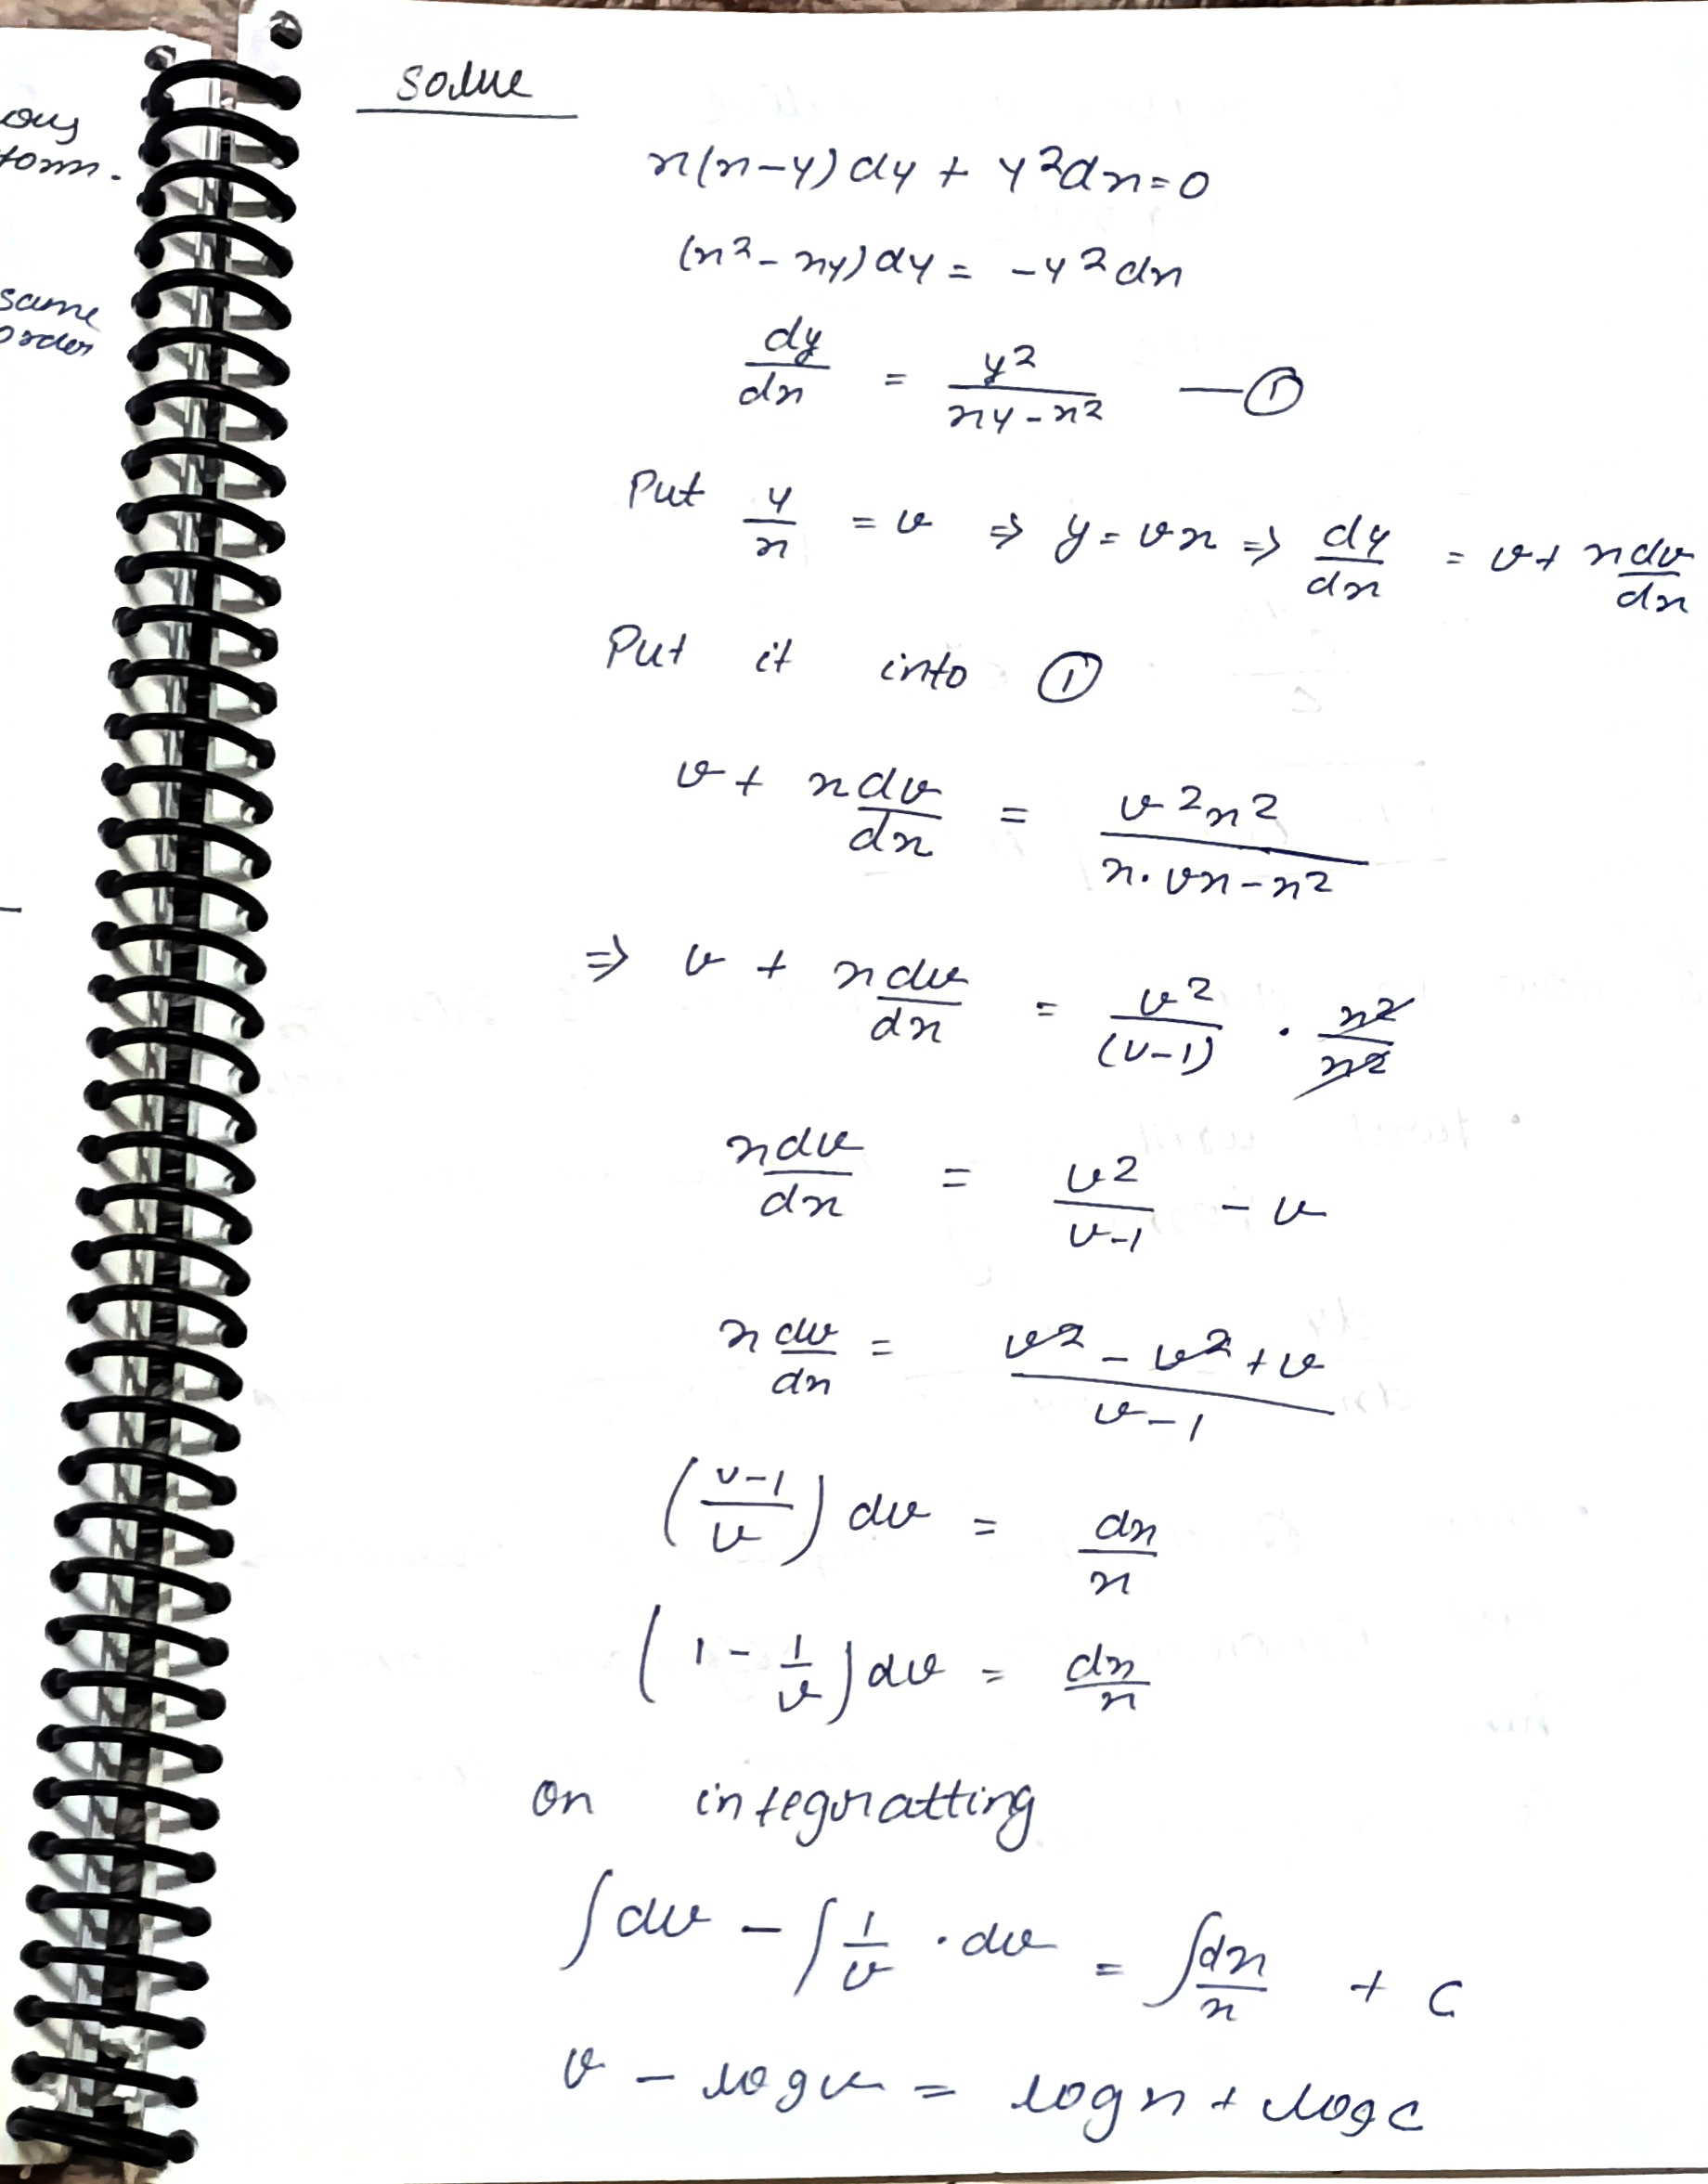 ous
form.
same
order
solve
x(x-y) dy + y²dx = 0
(x² - xy) dy = -y² dx
dy/dx = y²/(xy - x²) — ①
Put y/x = v ⇒ y = vx ⇒ dy/dx = v + x dv/dx
Put it into ①
v + x dv/dx = v²x²/(x·vx - x²)
⇒ v + x dv/dx = v²/(v-1) · x²/x²
x dv/dx = v²/(v-1) - v
x dv/dx = (v² - v² + v)/(v-1)
((v-1)/v) dv = dx/x
(1 - 1/v) dv = dx/x
On integratting
∫dv - ∫1/v · dv = ∫dx/x + C
v - log v = log x + log c